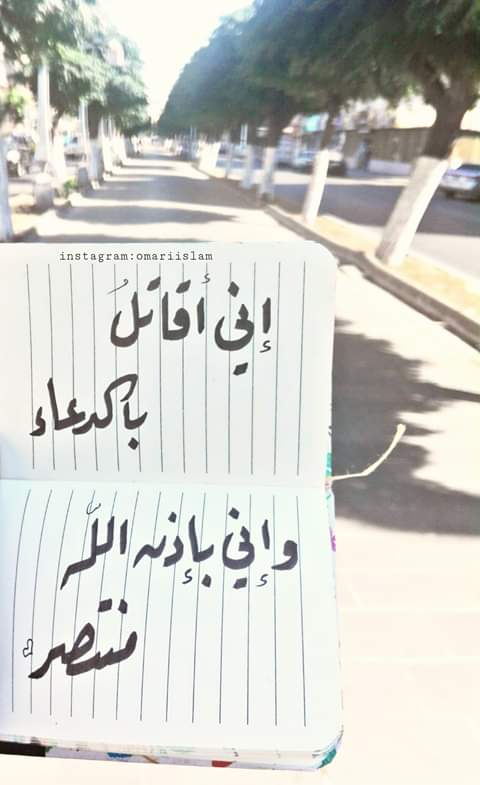 instagram:omariislam
إني أقاتلُ
بالدعاء
وإني بإذن اللّه
منتصر